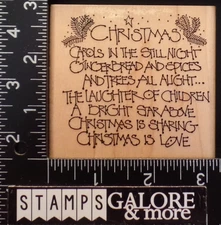 CHRISTMAS
CAROLS IN THE STILL NIGHT
GINGERBREAD AND SPICES
AND TREES ALL ALIGHT...
THE LAUGHTER OF CHILDREN
A BRIGHT STAR ABOVE
CHRISTMAS IS SHARING
CHRISTMAS IS LOVE
1
2
3
1
2
3
STAMPS GALORE
& more